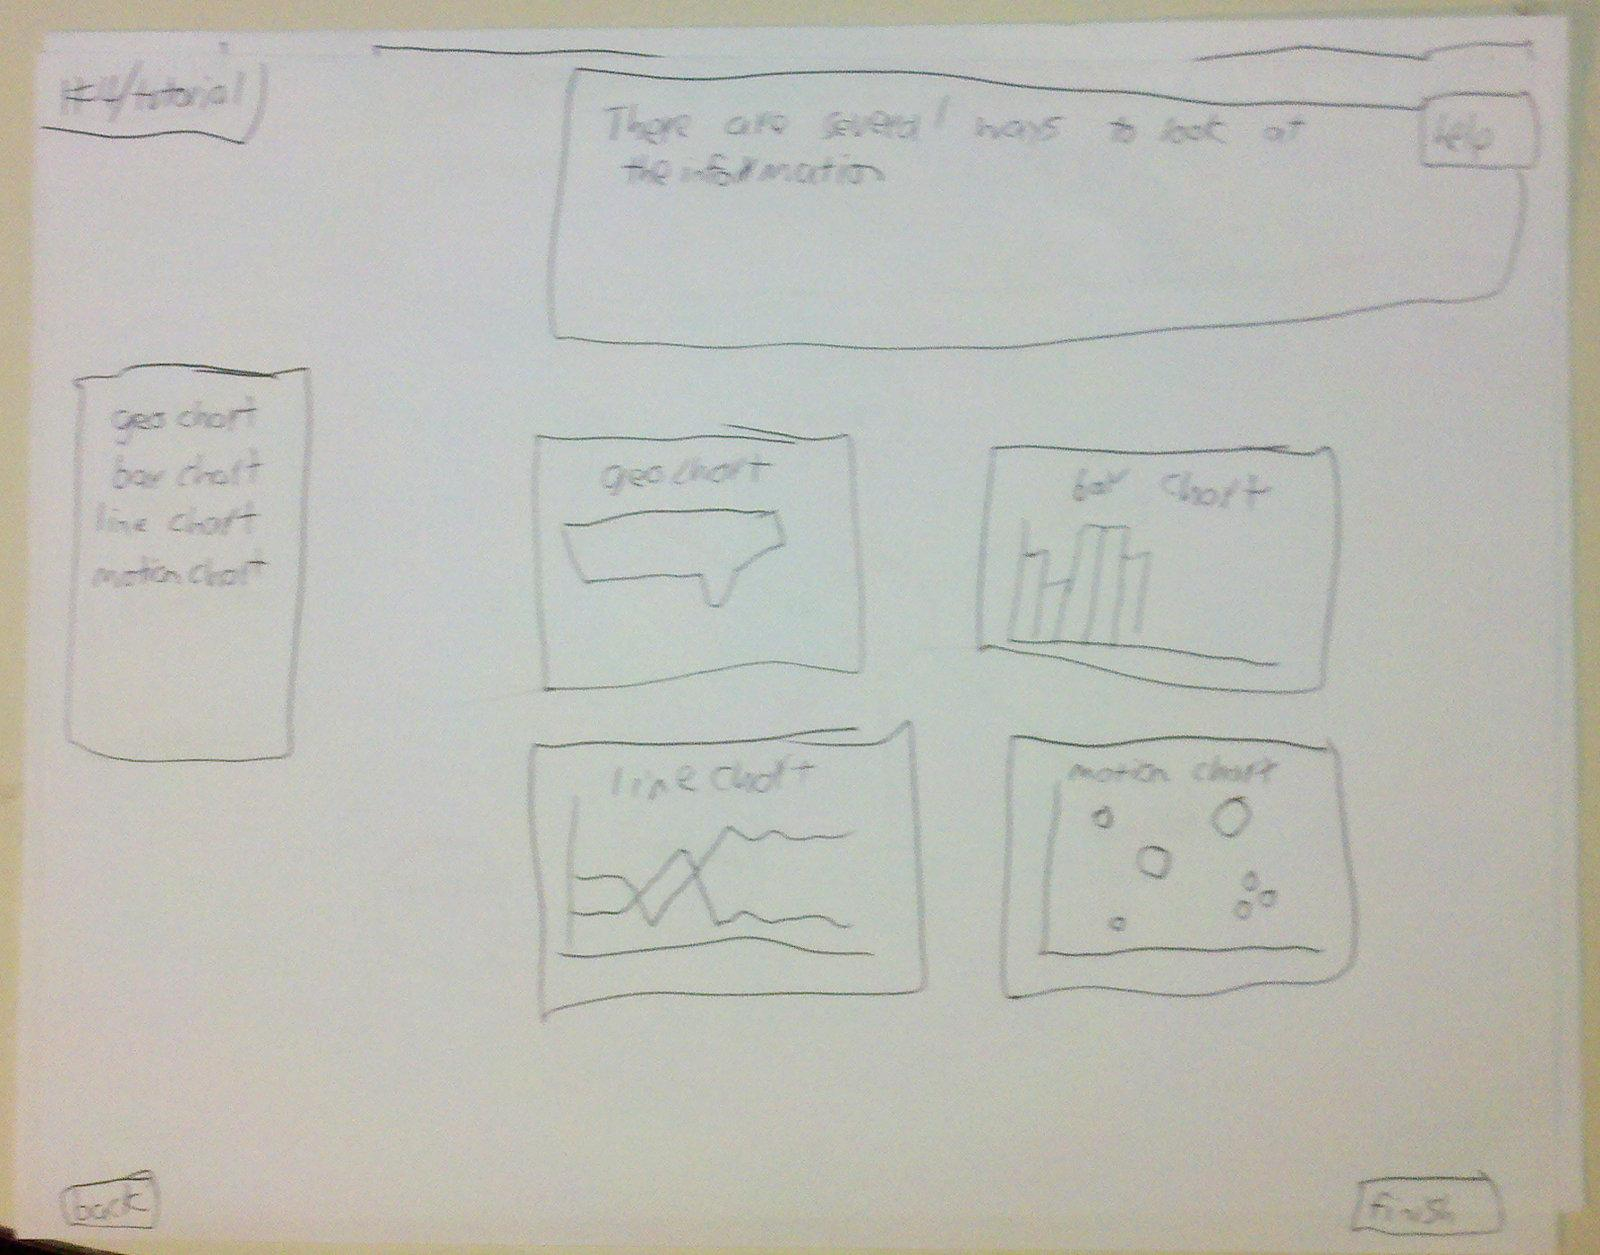 #4/tutorial
There are several ways to look at
the information
Help
geo chart
bar chart
line chart
motion chart
geo chart
bar chart
line chart
motion chart
back
finish